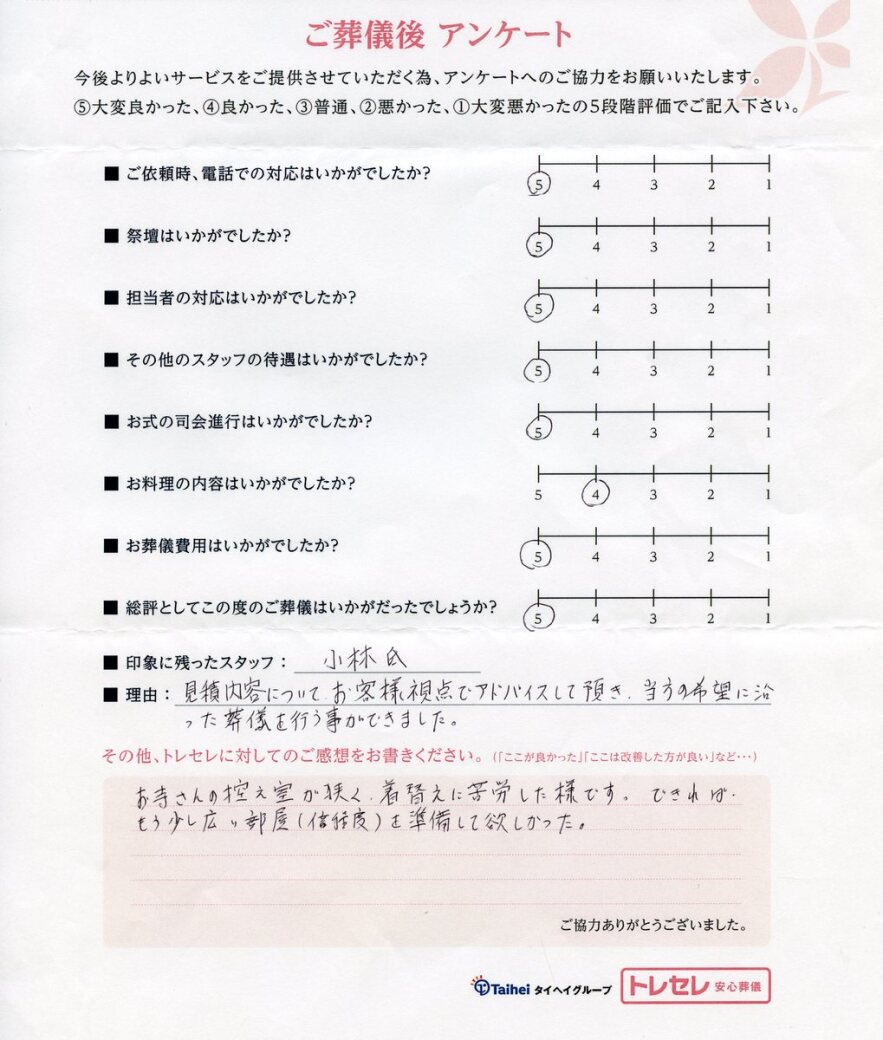 ご葬儀後 アンケート
今後よりよいサービスをご提供させていただく為、アンケートへのご協力をお願いいたします。
⑤大変良かった、④良かった、③普通、②悪かった、①大変悪かったの5段階評価でご記入下さい。
■ ご依頼時、電話での対応はいかがでしたか? 5 4 3 2 1
■ 祭壇はいかがでしたか? 5 4 3 2 1
■ 担当者の対応はいかがでしたか? 5 4 3 2 1
■ その他のスタッフの待遇はいかがでしたか? 5 4 3 2 1
■ お式の司会進行はいかがでしたか? 5 4 3 2 1
■ お料理の内容はいかがでしたか? 5 4 3 2 1
■ お葬儀費用はいかがでしたか? 5 4 3 2 1
■ 総評としてこの度のご葬儀はいかがだったでしょうか? 5 4 3 2 1
■ 印象に残ったスタッフ: 小林氏
■ 理由: 見積内容について、お客様視点でアドバイスして頂き、当方の希望に沿
った葬儀を行う事ができました。
その他、トレセレに対してのご感想をお書きください。(「ここが良かった」「ここは改善した方が良い」など…)
お寺さんの控え室が狭く、着替えに苦労した様です。できれば、
もう少し広い部屋(倍程度)を準備して欲しかった。
ご協力ありがとうございました。
Taihei タイヘイグループ トレセレ 安心葬儀